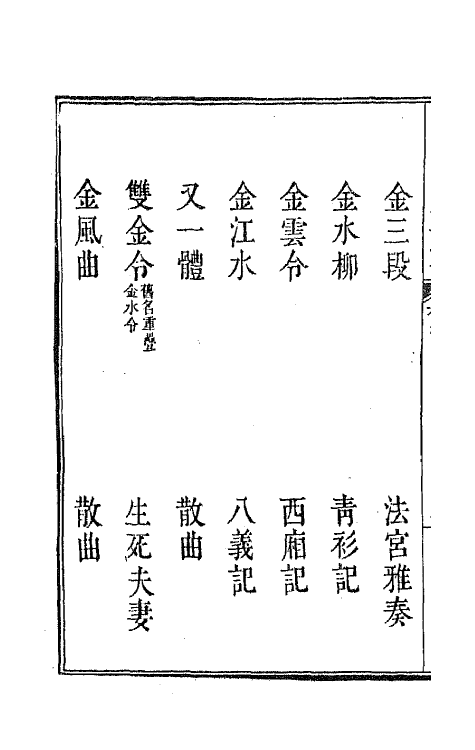 金三段　法宮雅奏
金水柳　青衫記
金雲令　西廂記
金江水　八義記
又一體　散曲
雙金令舊名重疊金水令　生死夫妻
金風曲　散曲